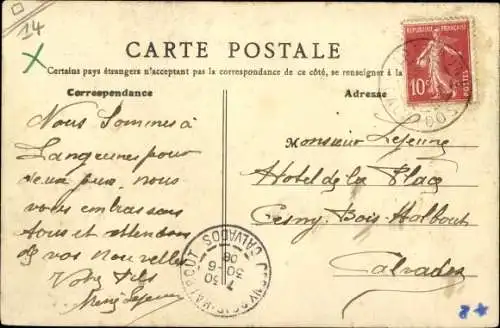 14
CARTE POSTALE
Certains pays étrangers n'acceptant pas la correspondance de ce côté, se renseigner à la
Correspondance
Nous Sommes à
pour
nous
vous embrassons
tous et attendons
de vos nouvelles
Votre fils
Lejeune
Adresse
Monsieur Lejeune
Hotel de la Place
Cesny-Bois-Halbout
Calvados
REPUBLIQUE FRANÇAISE
10c
POSTES
CALVADOS
7 50
30-6
08